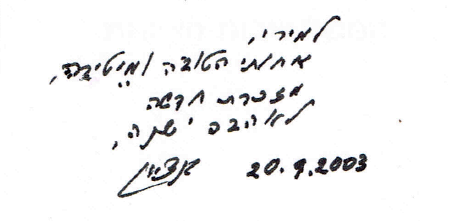 למירי,
אחותי הטובה ומיטיבה,
מזכרת חדשה
לאהבה ישנה,
20.9.2003